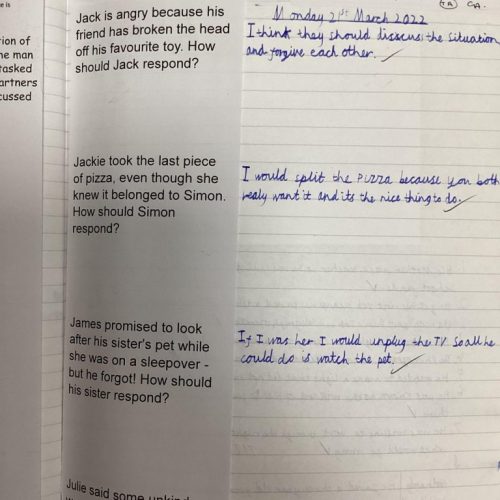 e is
ion of
he man
tasked
artners
cussed
Jack is angry because his
friend has broken the head
off his favourite toy. How
should Jack respond?
Monday 21st March 2022
TA CA.
I think they should disscus the situation
and forgive each other.
Jackie took the last piece
of pizza, even though she
knew it belonged to Simon.
How should Simon
respond?
I would split the PIZZA because you both
realy want it and its the nice thing to do.
James promised to look
after his sister's pet while
she was on a sleepover -
but he forgot! How should
his sister respond?
If I was her I would unplug the TV So all he
could do is watch the pet.
Julie said some unkind